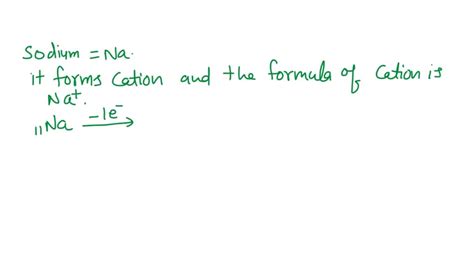 Sodium = Na.
it forms Cation and the formula of Cation is
Na⁺.
₁₁Na —1e⁻→